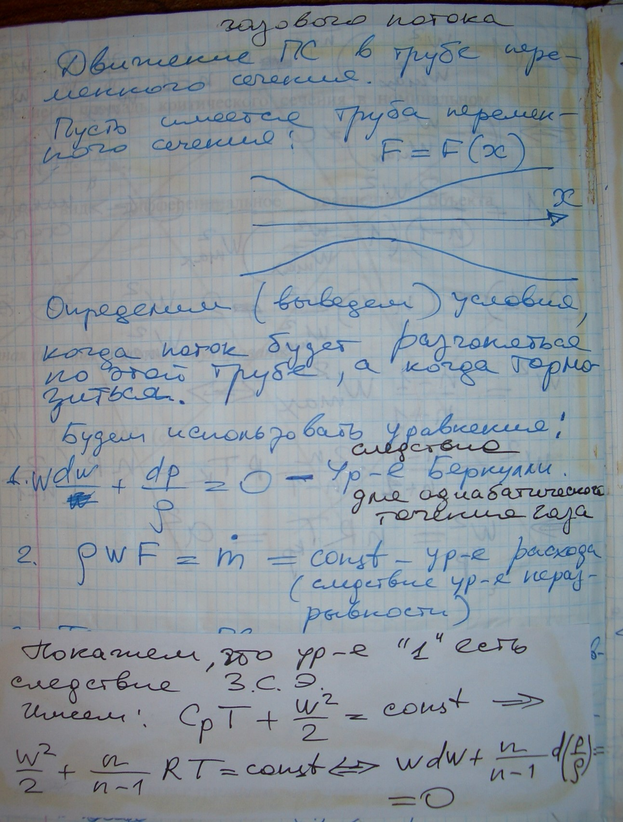 газового потока
Движение ПС в трубе пере-
менного сечения.
Пусть имеется труба перемен-
ного сечения:
F = F(x)
x
Определим (выведем) условия,
когда поток будет разгоняться
по этой трубе, а когда тормо-
зиться.
Будем использовать уравнения:
следствие
1. wdw + dp/ρ = 0 — Ур-е Бернулли.
для адиабатического
течения газа
2. ρwF = ṁ = const – ур-е расхода
(следствие ур-е нераз-
рывности)
Покажем, что ур-е "1" есть
следствие З.С.Э.
Имеем: CpT + w²/2 = const ⇒
w²/2 + n/(n-1) RT = const ⇔ wdw + n/(n-1) d(p/ρ) =
= 0